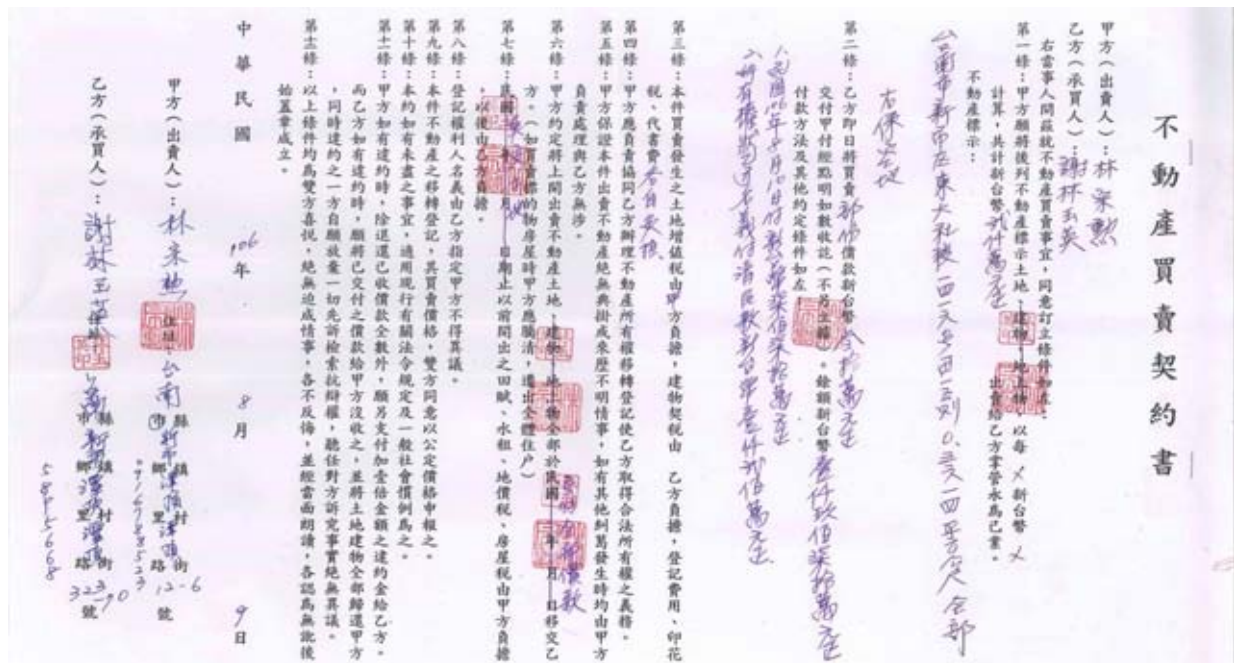 不動產買賣契約書
甲方（出賣人）：林宋勲
乙方（承買人）：謝林玉英
右當事人間茲就不動產買賣事宜，同意訂立條件如左：
第一條：甲方願將後列不動產標示土地、建物、地上物，以每 ㄨ 新台幣 ㄨ
計算，共計新台幣 出賣給乙方掌管永為己業。
不動產標示：
右係空地
第二條：乙方即日將買賣部份價款新台幣叁拾萬元正
交付甲付經點明如數收訖（不另立據）。餘額新台幣叁仟玖佰柒拾萬元正
付款方法及其他約定條件如左
第三條：本件買賣發生之土地增值稅由甲方負擔，建物契稅由 乙方負擔，登記費用、印花
稅、代書費各自負擔
第四條：甲方應負責協同乙方辦理不動產所有權移轉登記使乙方取得合法所有權之義務。
第五條：甲方保證本件出賣不動產絕無典掛或來歷不明情事，如有其他糾葛發生時均由甲方
負責處理與乙方無涉。
第六條：甲方約定將上開出賣不動產土地、建物、地上物全部於民國 年 月 日移交乙
方。（如買賣標的物房屋時甲方應騰清，遷出全體住戶）
第七條：民國 年 月 日期止以前開出之田賦、水租、地價稅、房屋稅由甲方負擔
，以後由乙方負擔。
第八條：登記權利人名義由乙方指定甲方不得異議。
第九條：本件不動產之移轉登記，其買賣價格，雙方同意以公定價格申報之。
第十條：本約如有未盡之事宜，適用現行有關法令規定及一般社會慣例為之。
第十一條：甲方如有違約時，除退還已收價款全數外，願另支付加壹倍金額之違約金給乙方。
而乙方如有違約時，願將已交付之價款給甲方沒收之，並將土地建物全部歸還甲方
，同時違約之一方自願放棄一切先訴檢索抗辯權，聽任對方訴究事實絕無異議。
第十二條：以上條件均為雙方喜悅，絕無迫成情事，各不反悔，並經當面朗讀，各認為無訛後
始蓋章成立。
中華民國 106 年 8 月 9 日
甲方（出賣人）：林宋勲 住址：台南 縣市 新市 鎮鄉 村里 街路 12-6 號
乙方（承買人）：謝林玉英 住址： 縣市 鎮鄉 村里 街路 號
5895668